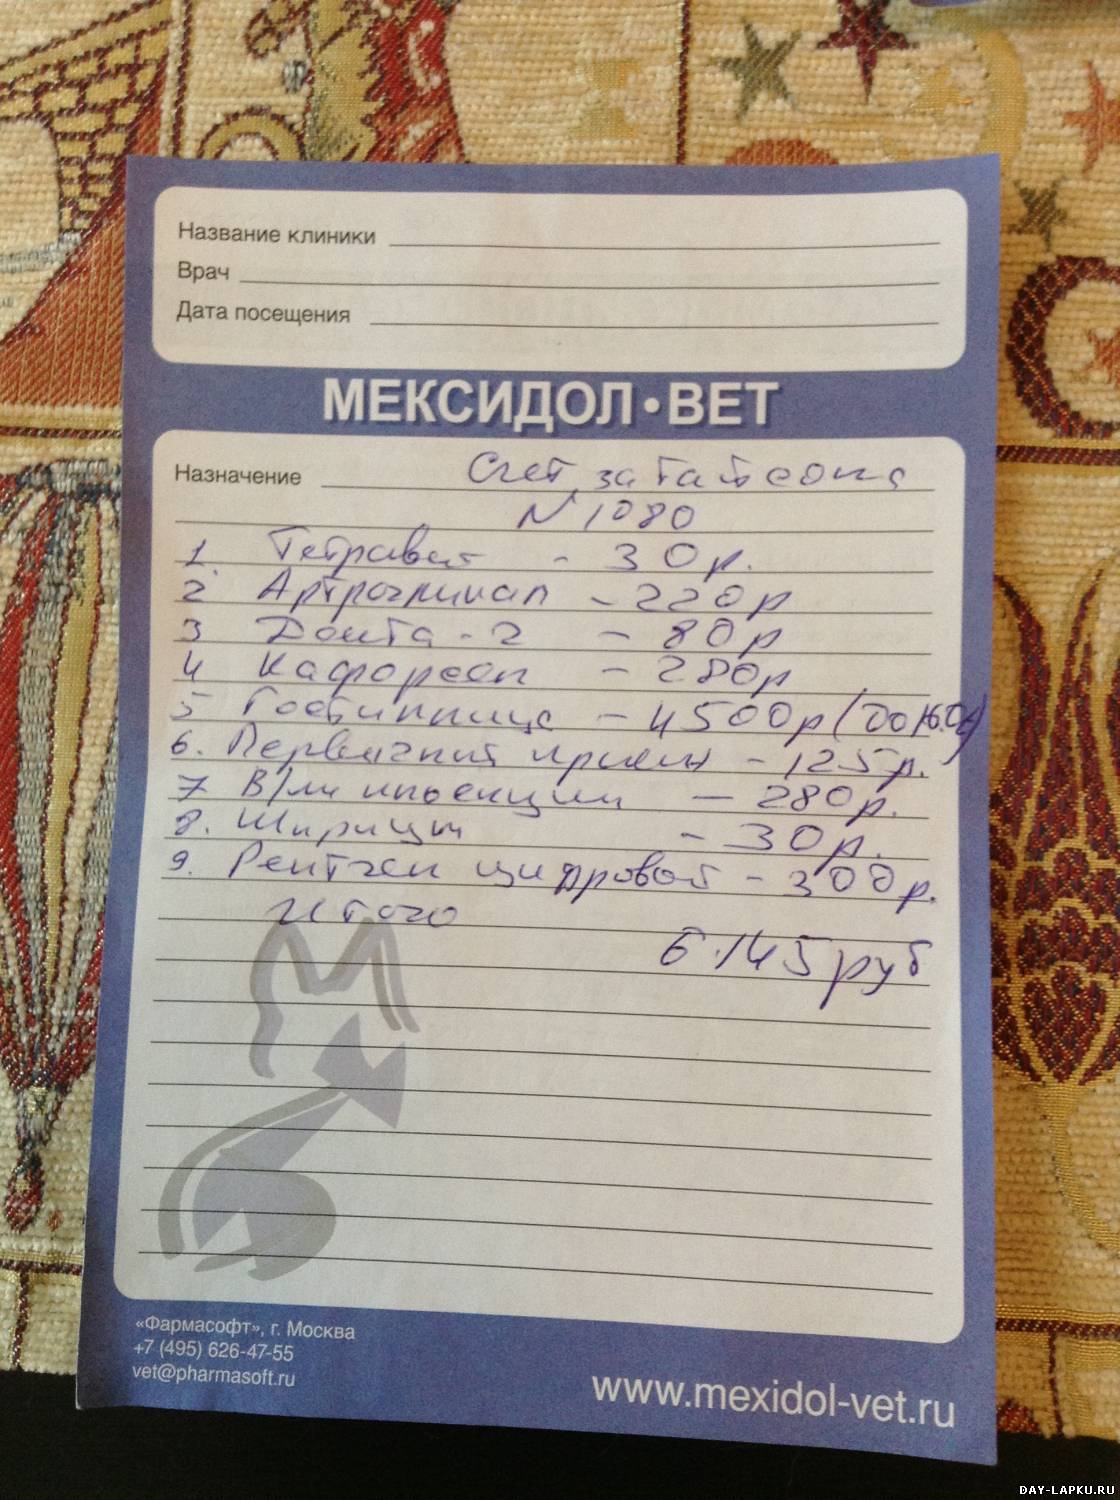 Название клиники
Врач
Дата посещения
МЕКСИДОЛ•ВЕТ
Назначение Счет за Тайсона
N 1080
1. Тетравит - 30р.
2 Артрогликан - 220р
3 Доита-2 - 80р
4 Кафорсен - 280р
5 Гостинница - 4500р (до 16.04)
6. Первичный прием - 125р.
7 В/м инъекции - 280р.
8. Шприцы - 30р.
9. Рентген цифровой - 300р.
Итого
6.145 руб
«Фармасофт», г. Москва
+7 (495) 626-47-55
vet@pharmasoft.ru
www.mexidol-vet.ru
DAY-LAPKU.RU